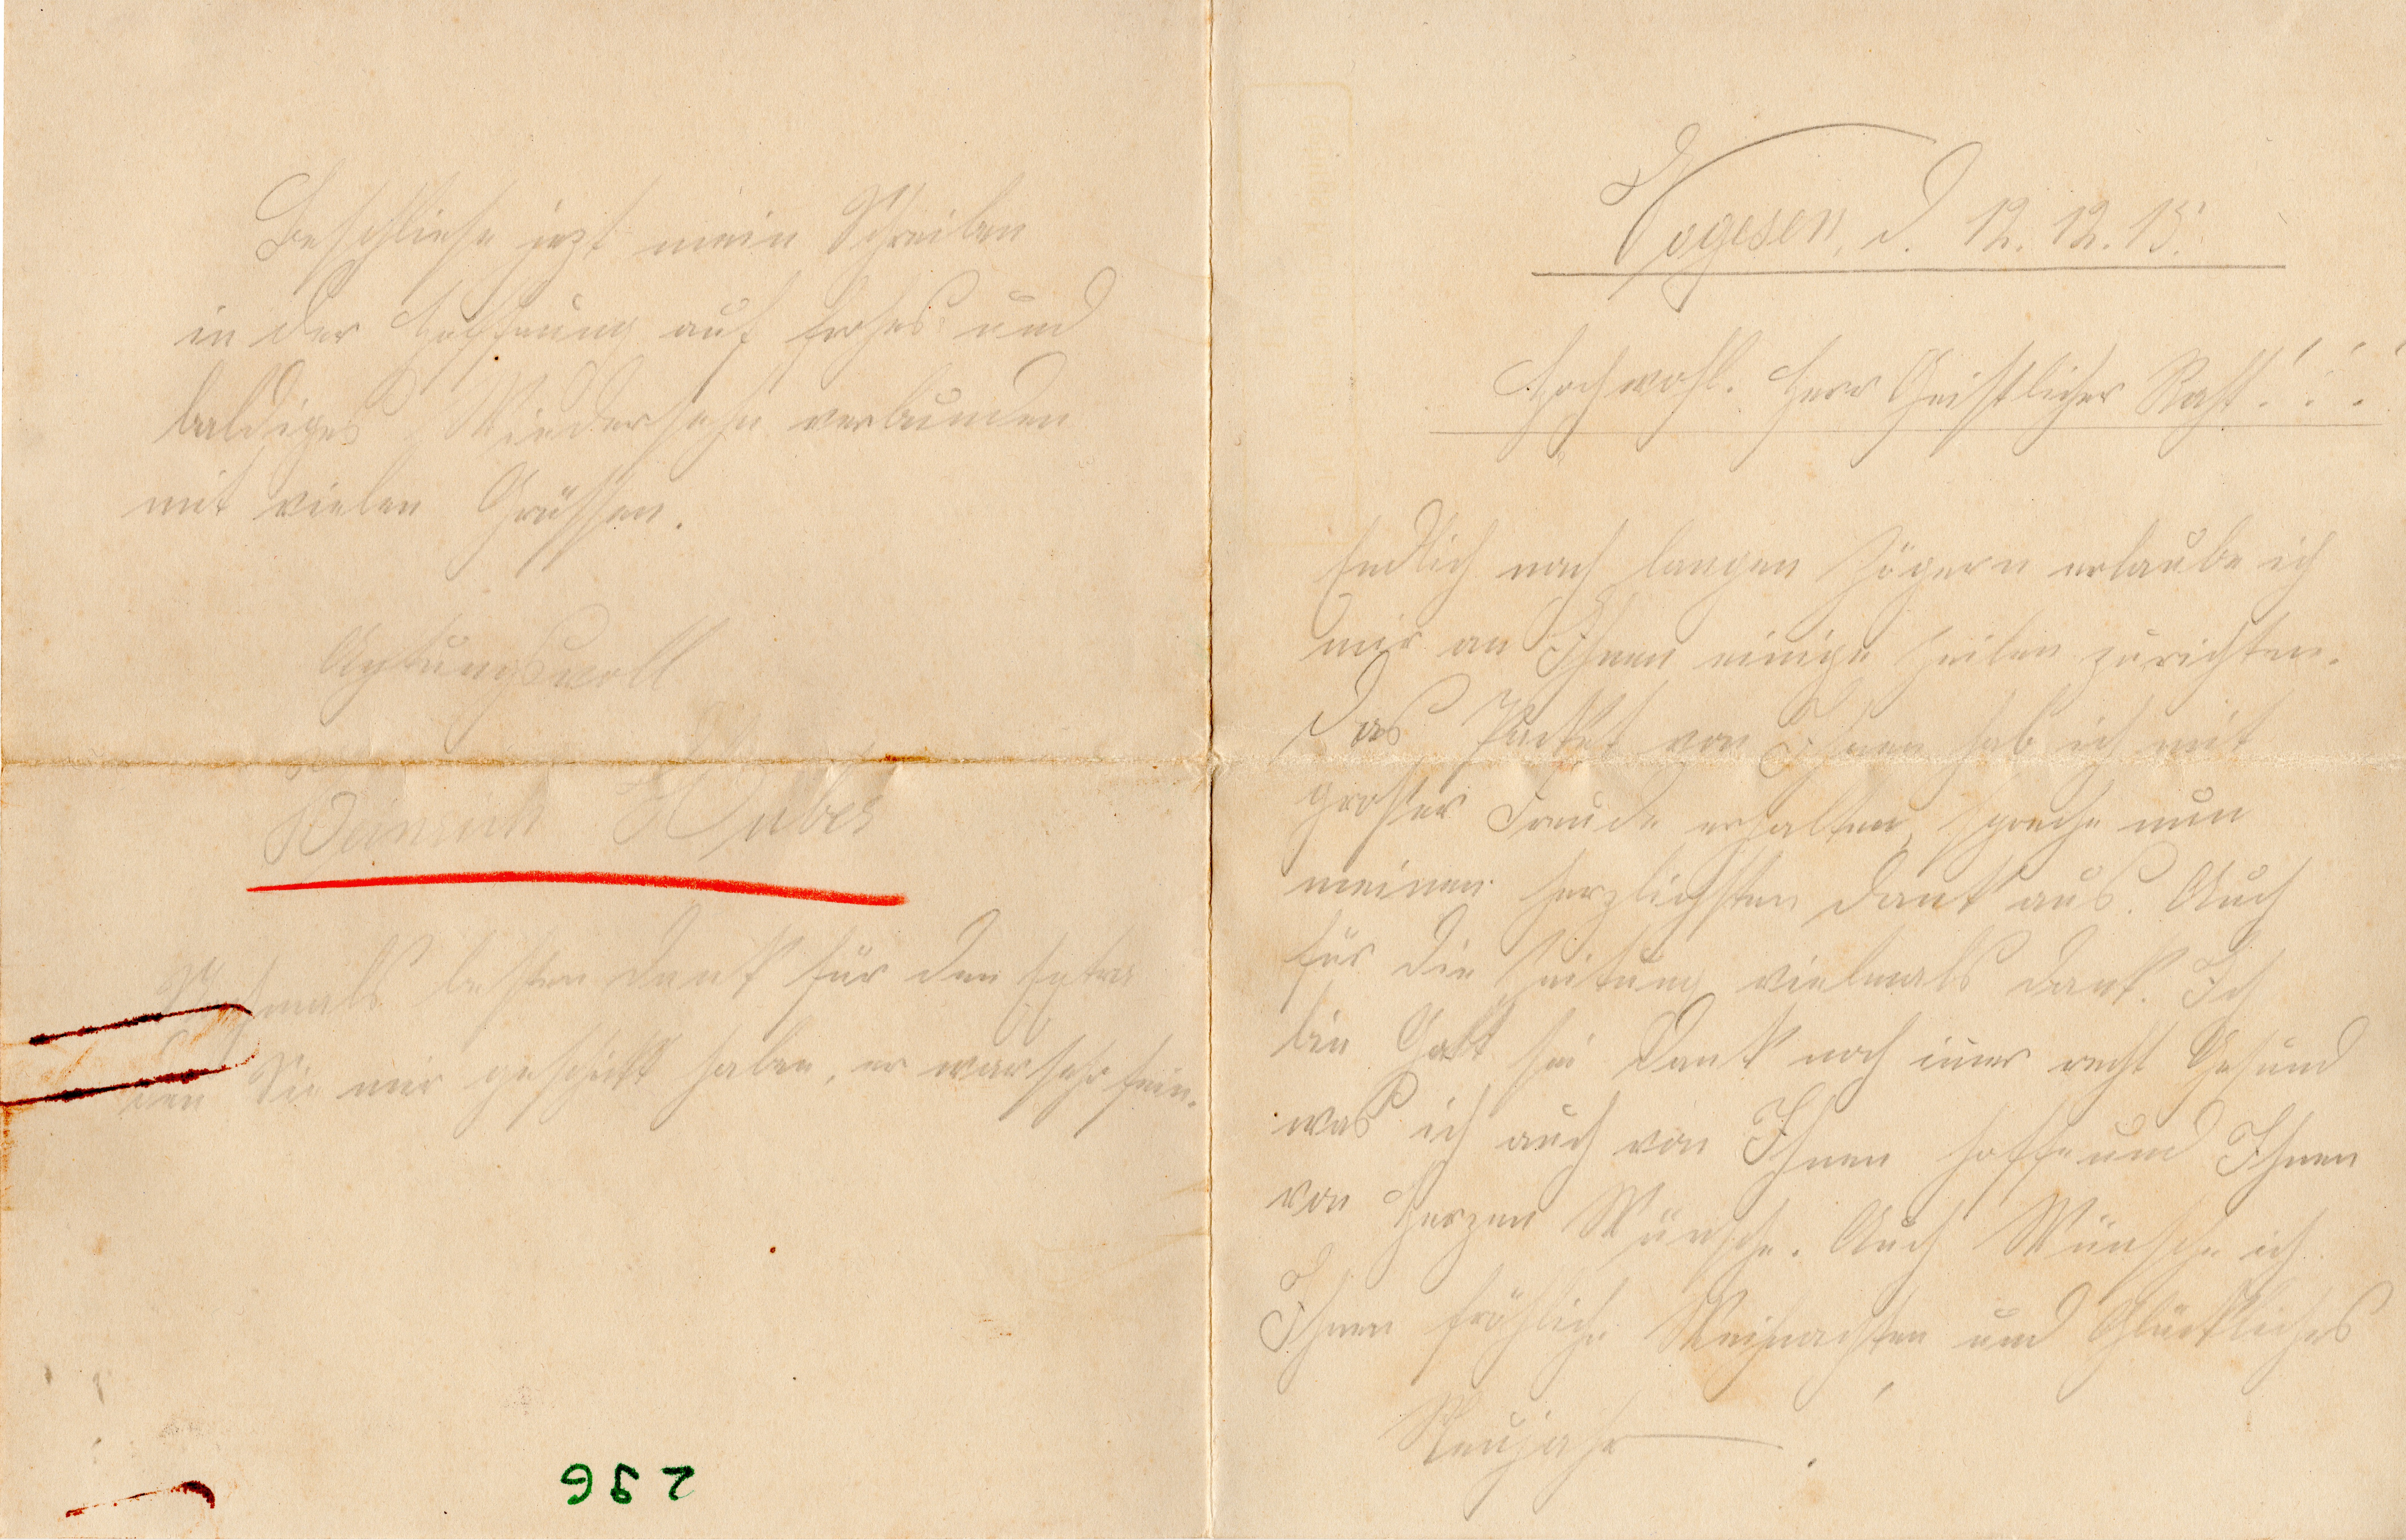 Vogesen, d. 12. 12. 15.
Hochwohl. Herr Geistlicher Raht!!!
Endlich nach langen Zögern erlaube ich
mir an Ihnen einige Zeilen zurichten.
Das Packet von Ihnen hab ich mit
großer Freude erhalten, spreche nun
meinen herzlichsten Dank aus. Auch
für die Zeitung vielmals Dank. Ich
bin Gott sei Dank noch imer recht Gesund
was ich auch von Ihnen hoffe und Ihnen
von Herzen Wünsche. Auch Wünsche ich
Ihnen fröhliche Weihnachten und Glückliches
Neujahr.
Beschliese jezt mein Schreiben
in der Hoffnung auf frohes und
baldiges Wiedersehn verbunden
mit vielen Grüssen.
Achtungsvoll
Heinrich Huber
Nochmals besten Dank für den
den Sie mir geschickt haben, er war sehr fein.
296